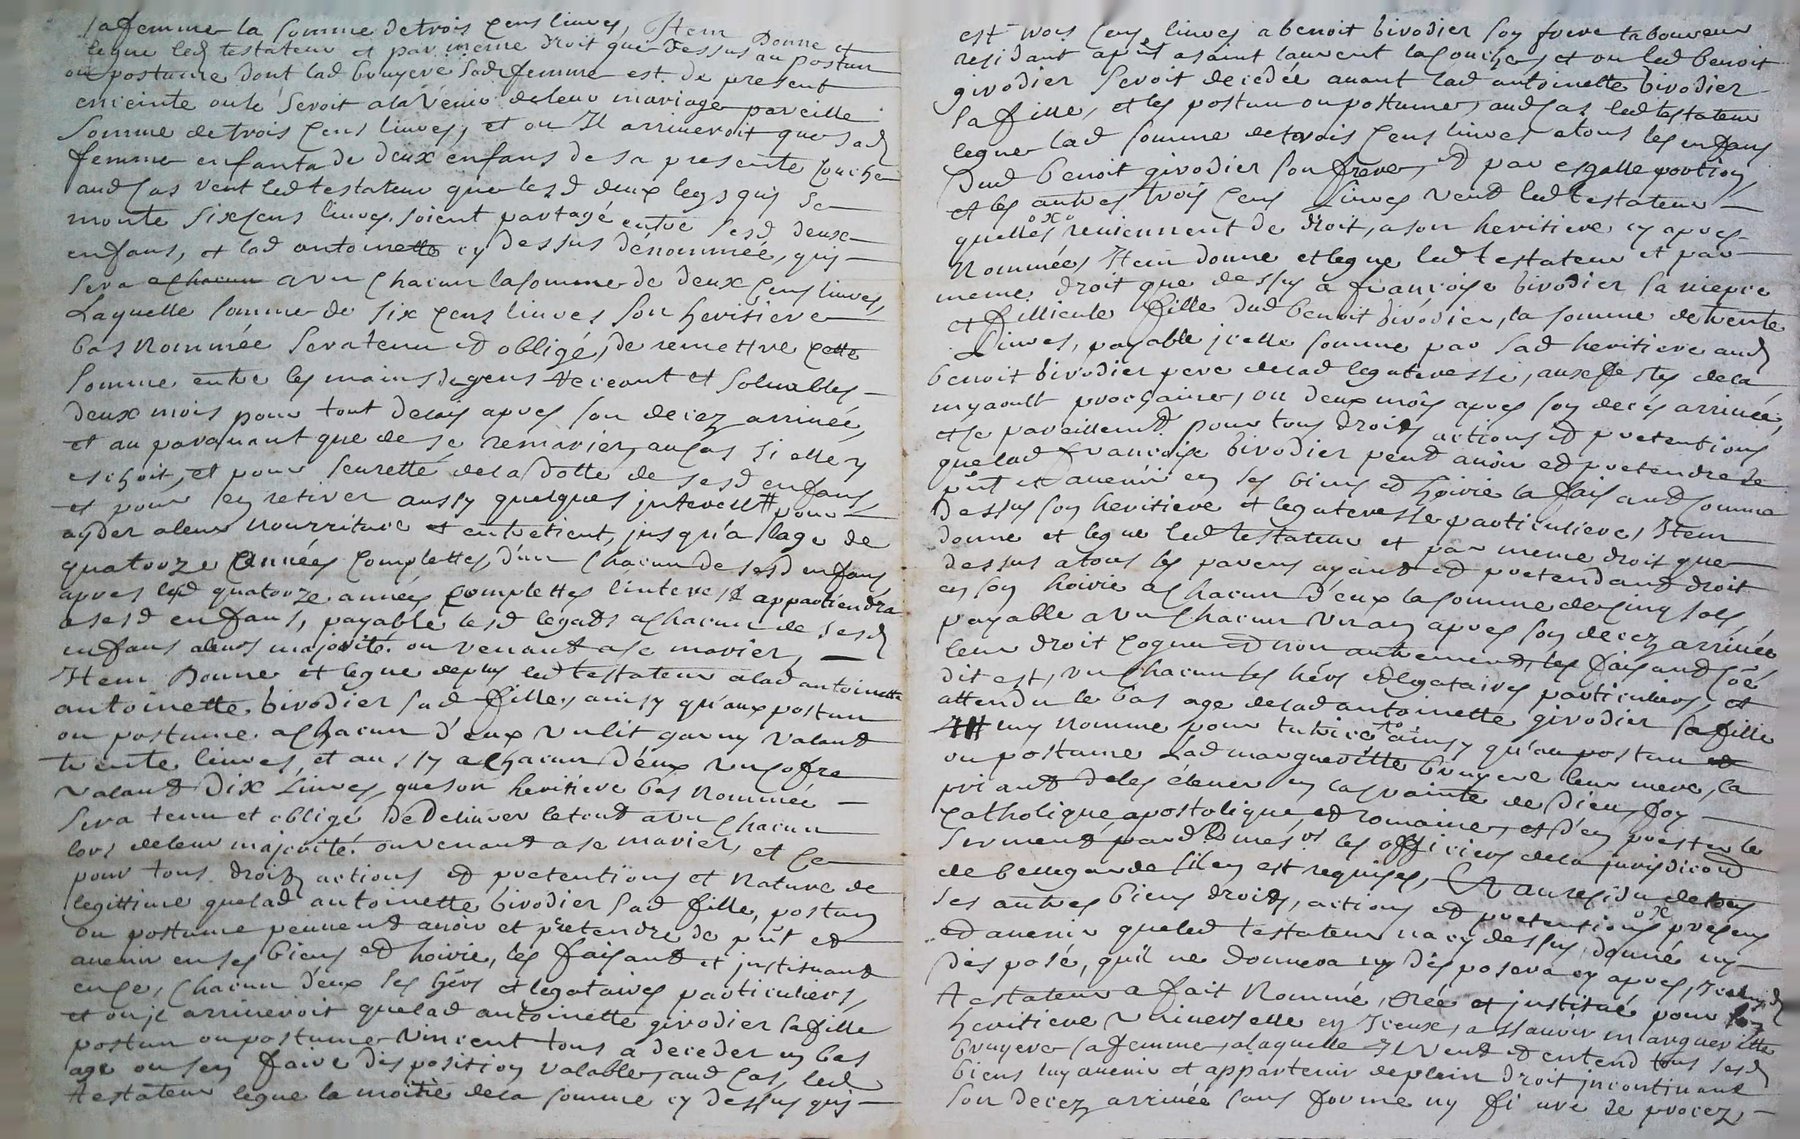 sa femme la somme de trois cens livres, Item Donne et
legue led testateur et par meme droit que dessus au postum
ou postume dont lad bruyere sad femme est de present
enceinte ou le seroit a la venir de leur mariage pareille
somme de trois cens livres, et ou Il arriveroit que sad
femme enfanta de deux enfans de sa presente couche
aud cas veut led testateur que lesd deux legs quy se
monte six cens livres soient partagé entre sesd deux
enfans, et lad antoinette cy dessus dénommée, quy
sera a chacun a un chacun la somme de deux cens livres,
Laquelle somme de six cens livres son heritiere
bas nommée sera tenu et obligé, de remettre cette
somme entre les mains de gens receant et solvables
deux mois pour tout delay apres son decez arrivée,
et au paravant que de se remarier, au cas si elle y
eschoit, et pour seuretté de la dotte de sesd enfans,
et pour en retirer aussy quelques interest pour
ayder a leur nourriture et entretient, jusqu'a l'age de
quatorze années complettes, d'un chacun de sesd enfans
apres lesd quatorze années complettes l'interest appartiendra
a sesd enfans, payable lesd legats a chacun de sesd
enfans a leurs majorité ou venant a se marier,
Item Donne et legue de plus led testateur a lad antoinette
antoinette birodier sad fille, ainsy qu'aux postum
ou postume a chacun d'eux un lit garny valant
trente livres, et aussy a chacun d'eux un cofre
valant Dix Livres, que son heritiere bas nommée
sera tenu et obligé de Delivrer le tout a un chacun
lors de leur majorité ou venant a se marier, et ce
pour tous droitz actions et pretentions et nature de
legittime que lad antoinette birodier sad fille, postum
ou postume peuvent avoir et pretendre de pñt et
avenir en ses biens et hoirie, les faisant et instituant
en ce, chacun d'eux ses hers et legataires particuliers,
et ou il arriveroit que lad antoinette girodier sa fille
postum ou postume vincent tous a deceder en bas
age ou sen faire disposition valable, aud cas, led
testateur legue la moitié de la somme cy dessus quy
est trois cens livres a benoit birodier son frere laboureur
residant a pñt a saint laurent la conche, et ou led benoit
girodier seroit decedée avant lad antoinette birodier
sa fille, et les postum ou postume, aud cas led testateur
legue lad somme de trois cens livres a tous les enfans
dud benoit girodier son frere, et par esgalle portion,
et les autres trois cens livres veut led testateur
quelles reviennent de droit, a son heritiere cy apres
Nommée, Item donne et legue led testateur et par
meme droit que dessus a françoise birodier sa niepce
et fillieule fille dud benoit birodier, la somme de trente
Livres, payable icelle somme par sad heritiere aud
benoit birodier pere de lad legateresse, aux festes de la
my aoult procgaine, ou deux mois apres son decés arrivée,
et ce pareillemt pour tous droits actions et pretentions
que lad françoise birodier peut avoir et pretendre de
pñt et avenir en ses biens et hoirie la fais aud comme
Dessus son heritiere et legateresse particuliere, Item
donne et legue led testateur et par meme droit que
dessus a tous les parens ayant et pretendant droit
en son hoirie a chacun d'eux la somme de cinq sols,
payable a un chacun un an apres son decez arrivée
leur droit cognu et non autrement, les faisant cõe
dit est, un chacun ses hers et legataires particuliers, et
attendu le bas age de lad antoinette girodier sa fille
luy nomme pour tutrice ainsy qu'au postum
ou postume Lad margueritte bruyere leur mere, la
priant de les élever en la crainte de Dieu, foy
catholique apostolique et romaine, et d'en prester le
serment pard les officiers de la jurisdicon
de bellegarde s'il en est requise, Et au residu de tous
ses autres biens droits, actions et pretentions presens
et avenir que led testateur n'a cy dessus donné ny
disposé, qu'il ne donnera ny disposera cy apres,
testateur a fait Nommé, crée et institué pour son
heritiere universelle en Iceux, a sçavoir marguerite
bruyere sa femme, a laquelle Il veut et entend tous sesd
biens luy avenir et appartenir de plein droit incontinant
son decez arrivée sans forme ny figure de procez,